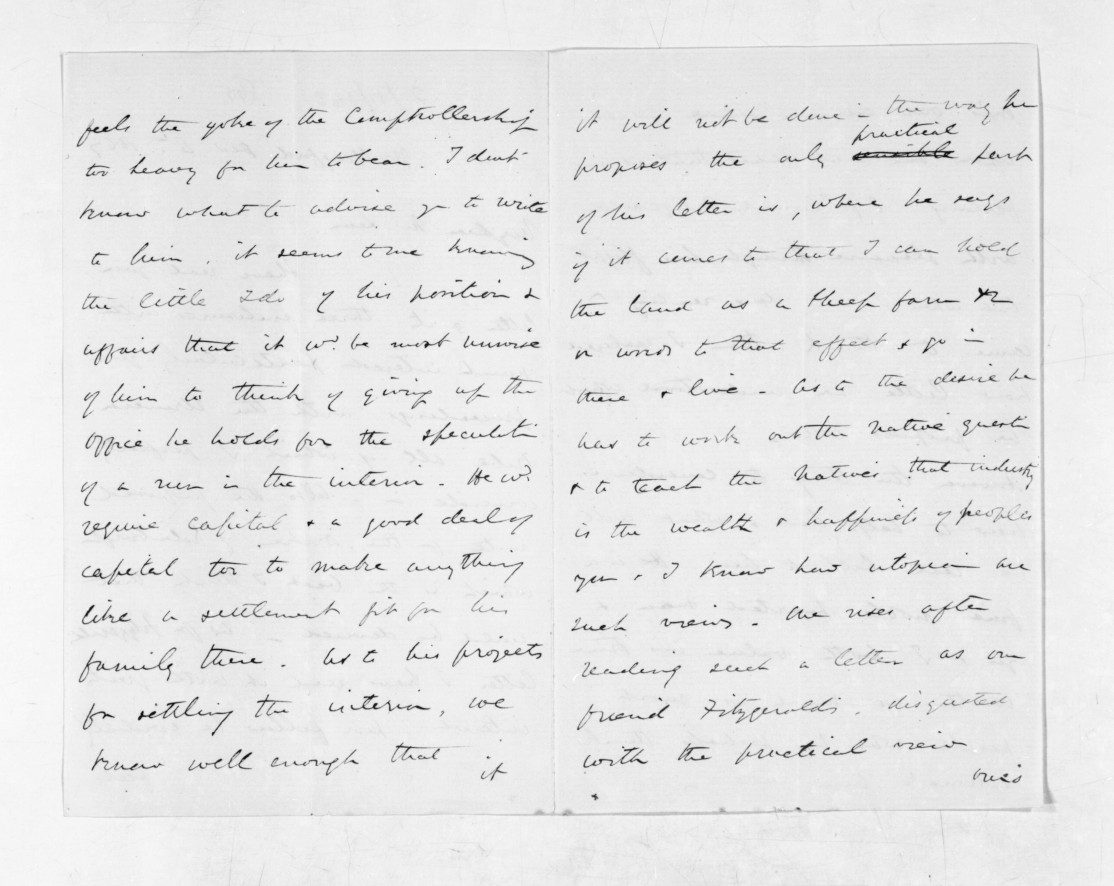 feels the yoke of the Comptrollership
too heavy for him to bear. I dont
know what to advise you to write
to him. it seems to me knowing
the little I do of his position &
affairs that it wd. be most unwise
of him to think of giving up the
office he holds for the speculation
of a run in the interior. He wd.
require capital & a good deal of
capital too to make anything
like a settlement fit for his
family there. As to his projects
for settling the interior, we
know well enough that
it
it will not be done in the way he
practical
proposes the only sensible part
of his letter is, where he says
if it comes to that I can hold
the land as a sheep farm &c
or words to that effect & go in
there & live - As to the desire he
has to work out the native question
& to teach the natives that industry
is the wealth & happiness of peoples
you & I know how utopian are
such views - One rises after
reading such a letter as our
friend Fitzgeralds, disgusted
with the practical view
one's